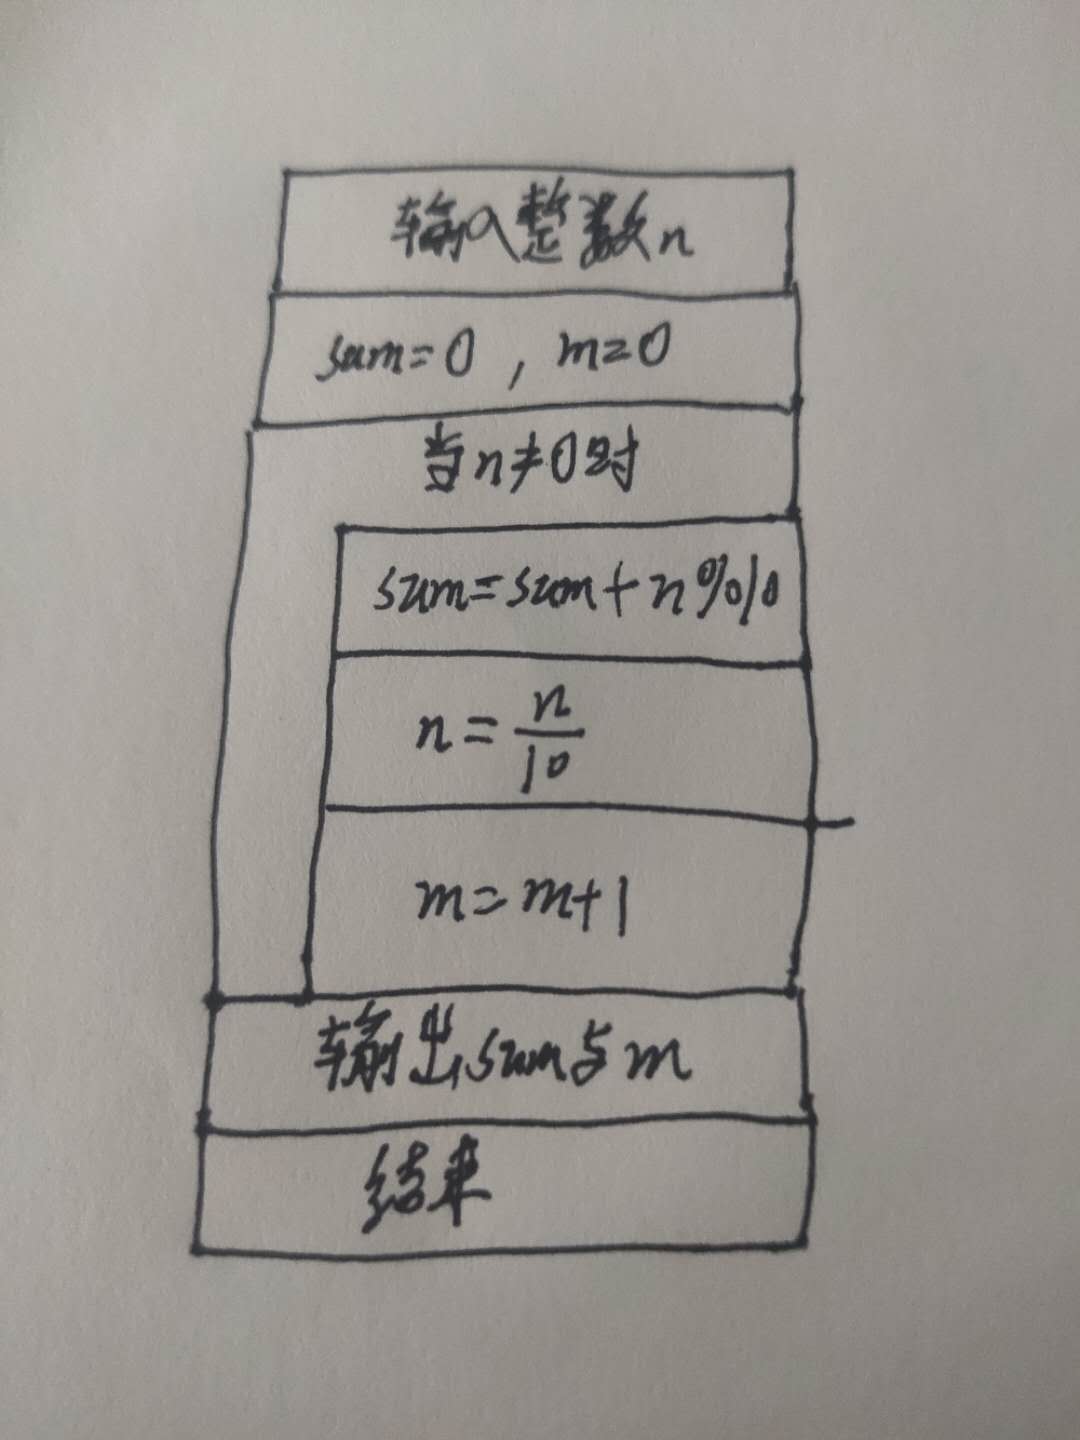 输入整数n
sum=0，m=0
当n≠0时
sum=sum+n%10
n=n/10
m=m+1
输出sum与m
结束